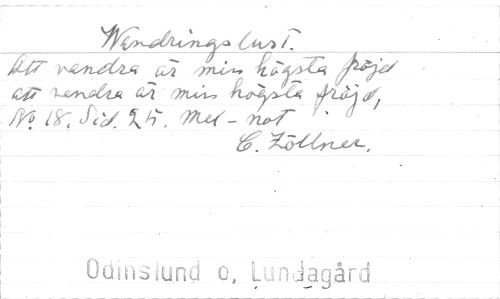 Wandringslust.
Att vandra är min högsta fröjd
att vandra är min högsta fröjd,
No. 18. Sid. 25. Mel-not
C. Zöllner.
Odinslund o, Lundagård